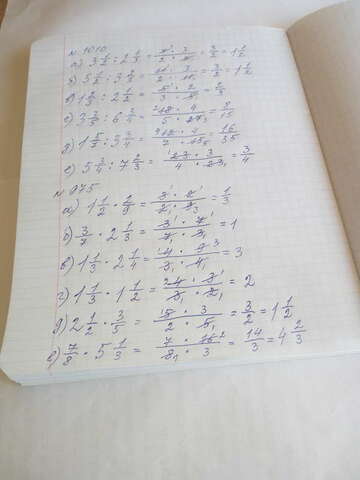 № 1010
а) 3 1/2 : 2 1/3 = 7 · 3 / 2 · 7 = 3/2 = 1 1/2
б) 5 1/2 : 3 2/3 = 11 · 3 / 2 · 11 = 3/2 = 1 1/2
в) 1 2/3 : 2 1/2 = 5 · 2 / 3 · 5 = 2/3
г) 3 3/5 : 6 3/4 = 18 · 4 / 5 · 27 = 8/15
д) 1 5/7 : 3 3/4 = 12 · 4 / 7 · 15 = 16/35
е) 5 3/4 : 7 2/3 = 23 · 3 / 4 · 23 = 3/4
№ 975
а) 1 1/2 · 2/9 = 3 · 2 / 2 · 9 = 1/3
б) 3/7 · 2 1/3 = 3 · 7 / 7 · 3 = 1
в) 1 1/3 · 2 1/4 = 4 · 9 / 3 · 4 = 3
г) 1 1/3 · 1 1/2 = 4 · 3 / 3 · 2 = 2
д) 2 1/2 · 3/5 = 5 · 3 / 2 · 5 = 3/2 = 1 1/2
е) 7/8 · 5 1/3 = 7 · 16 / 8 · 3 = 14/3 = 4 2/3